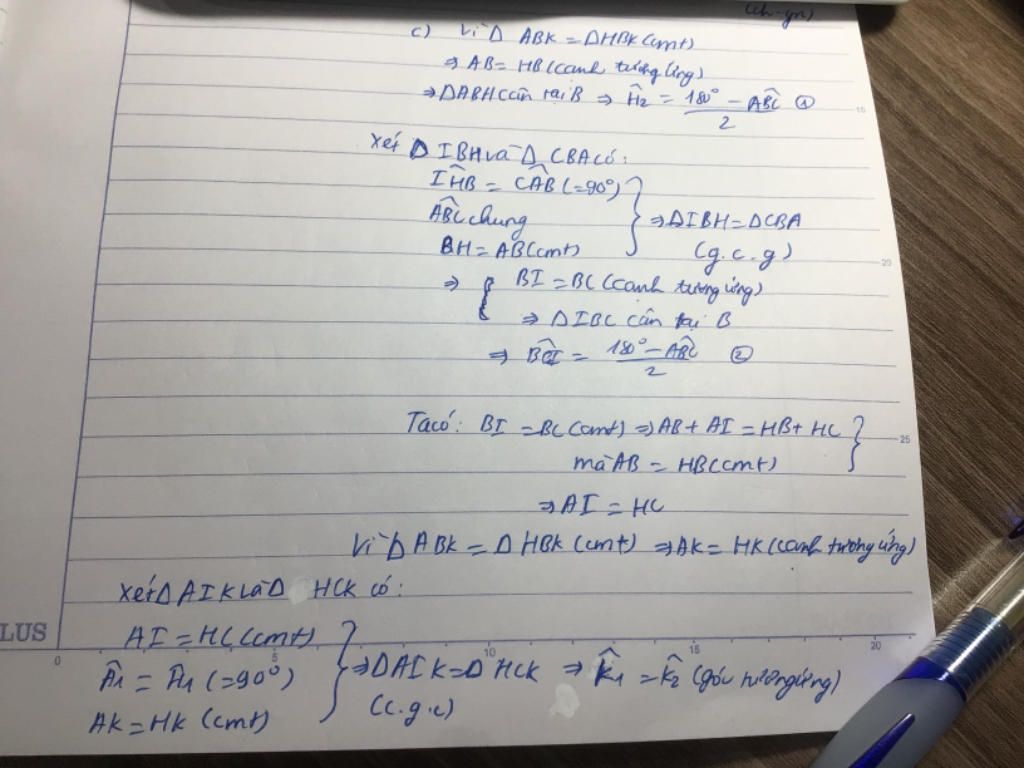 (ch-gn)
c) Vì Δ ABK = ΔHBK (cmt)
⇒ AB = HB (cạnh tương ứng)
⇒ ΔABH cân tại B ⇒ Ĥ₂ = (180° − ABC^)/2 ①
Xét Δ IBH và Δ CBA có:
IHB^ = CAB^ (=90°)
ABC^ chung } ⇒ ΔIBH = ΔCBA
BH = AB (cmt) (g.c.g)
⇒ { BI = BC (cạnh tương ứng)
⇒ Δ IBC cân tại B
⇒ BCI^ = (180° − ABC^)/2 ②
Ta có: BI = BC (cmt) ⇒ AB + AI = HB + HC }
mà AB = HB (cmt)
⇒ AI = HC
Vì Δ ABK = Δ HBK (cmt) ⇒ AK = HK (cạnh tương ứng)
Xét Δ AIK và Δ HCK có:
AI = HC (cmt)
Â₁ = Ĥ₁ (=90°) } ⇒ Δ AIK = Δ HCK ⇒ K̂₁ = K̂₂ (góc tương ứng)
AK = HK (cmt) (c.g.c)
LUS
0 5 10 15 20
15
20
25